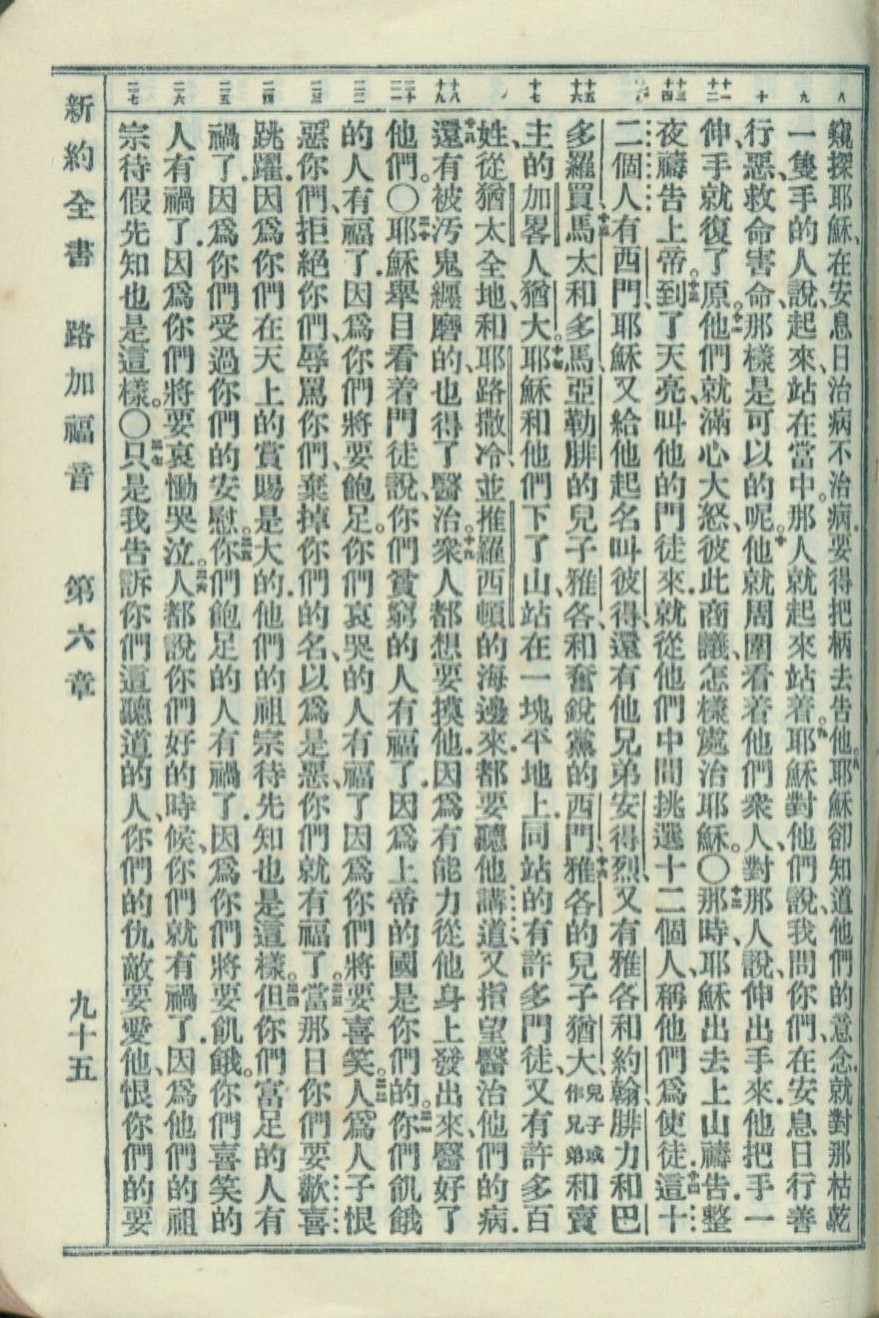 窺探耶穌、在安息日治病不治病、要得把柄去告他。耶穌卻知道他們的意念、就對那枯乾
一隻手的人說、起來站在當中。那人就起來站着。耶穌對他們說、我問你們、在安息日行善
行惡、救命害命、那樣是可以的呢。他就周圍看着他們衆人、對那人說、伸出手來、他把手一
伸、手就復了原。他們就滿心大怒、彼此商議、怎樣處治耶穌。〇那時、耶穌出去上山禱告、整
夜禱告上帝。到了天亮、叫他的門徒來、就從他們中間挑選十二個人、稱他們爲使徒、這十
二個人有西門、耶穌又給他起名叫彼得、還有他兄弟安得烈、又有雅各和約翰、腓力和巴
多羅買、馬太和多馬、亞勒腓的兒子雅各、和奮銳黨的西門、雅各的兒子猶大、兒子或作兄弟和賣
主的加畧人猶大、耶穌和他們下了山、站在一塊平地上、同站的有許多門徒、又有許多百
姓、從猶太全地、和耶路撒冷、並推羅西頓的海邊來、都要聽他講道、又指望醫治他們的病、
還有被汚鬼纏磨的、也得了醫治。衆人都想要摸他、因爲有能力從他身上發出來、醫好了
他們。〇耶穌舉目看着門徒說、你們貧窮的人有福了、因爲上帝的國是你們的。你們飢餓
的人有福了、因爲你們將要飽足。你們哀哭的人有福了、因爲你們將要喜笑。人爲人子恨
惡你們、拒絕你們、辱罵你們、棄掉你們的名、以爲是惡、你們就有福了。當那日你們要歡喜
跳躍、因爲你們在天上的賞賜是大的、他們的祖宗待先知也是這樣。但你們富足的人有
禍了、因爲你們受過你們的安慰。你們飽足的人有禍了、因爲你們將要飢餓。你們喜笑的
人有禍了、因爲你們將要哀慟哭泣。人都說你們好的時候、你們就有禍了、因爲他們的祖
宗待假先知也是這樣。〇只是我告訴你們這聽道的人、你們的仇敵要愛他、恨你們的要
新約全書 路加福音 第六章 九十五